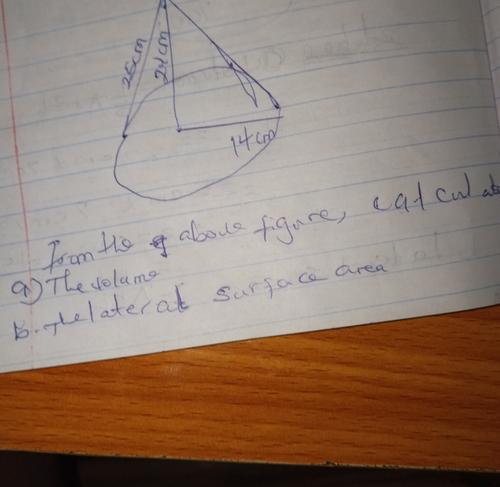 25cm
24cm
14cm
From the above figure, calculate
a) The volume
b. The lateral surface area